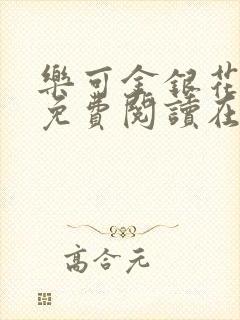 樂可金銀花
免費閱讀在
高合元